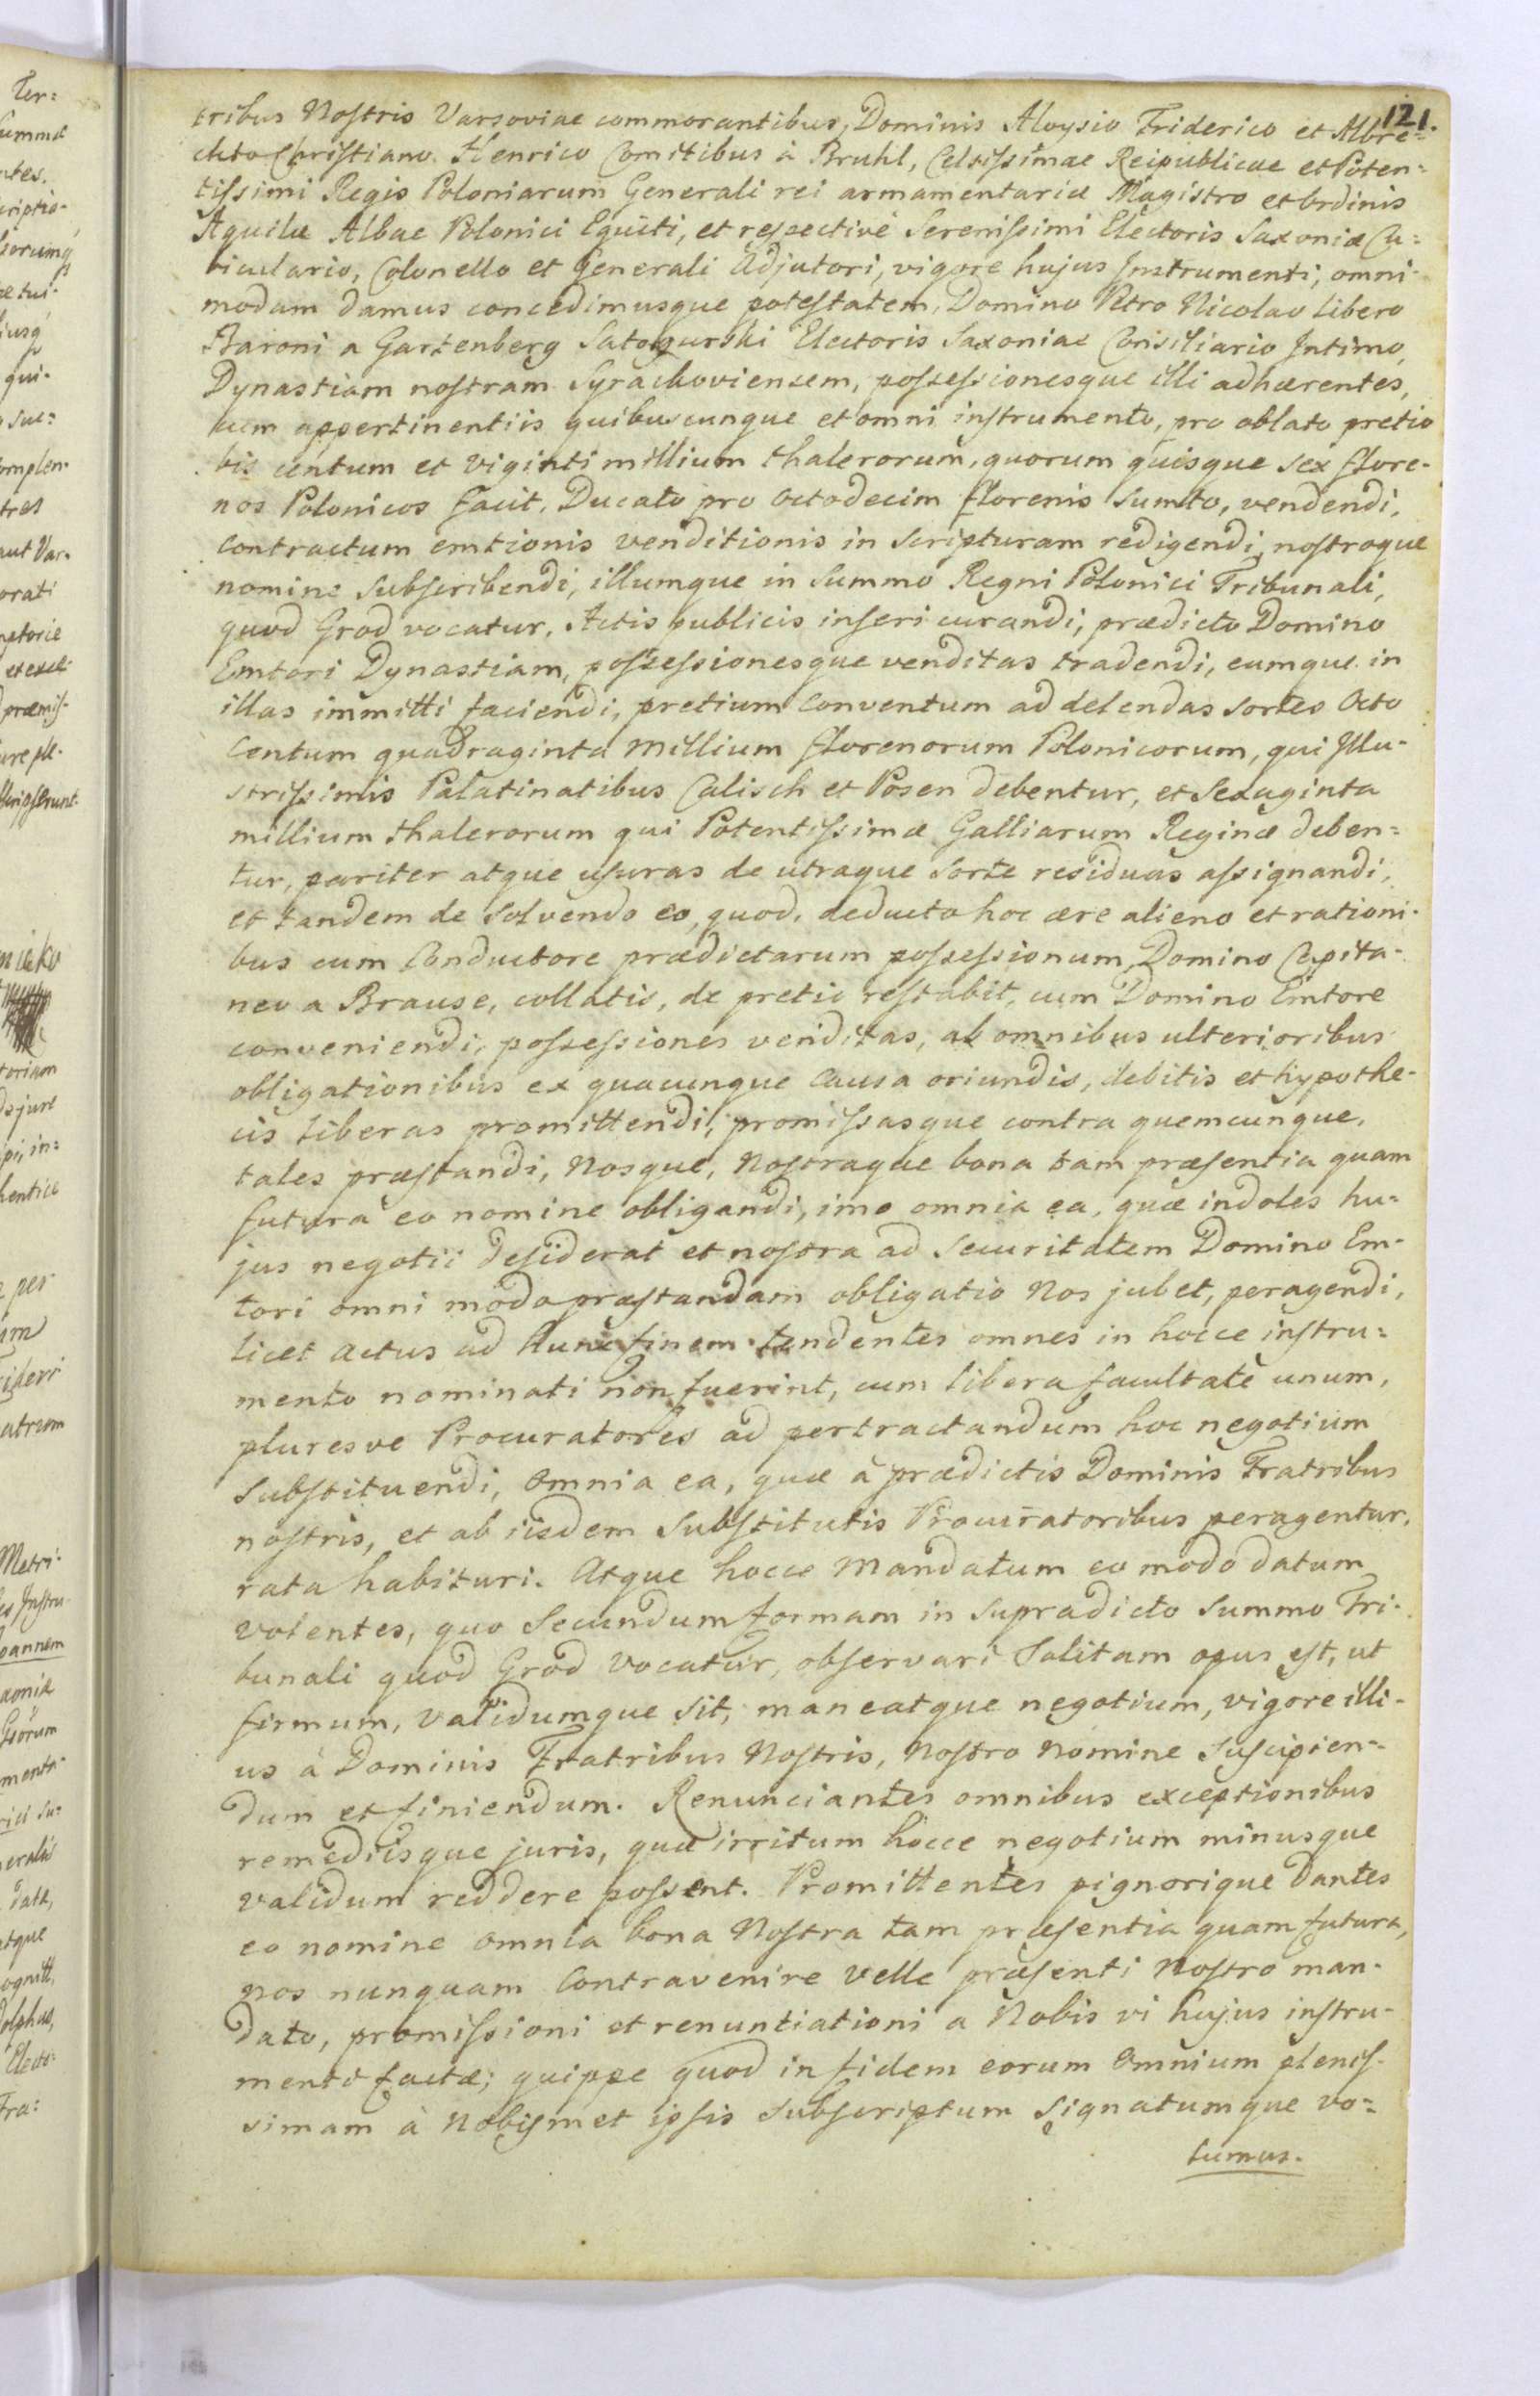 121.
tribus Nostris Varsoviae commorantibus, Dominis Aloysio Friderico et Albre=
chto Christiano Henrico Comitibus à Bruhl, Celsissimae Reipublicae et Poten=
tissimi Regis Poloniarum Generali rei armamentariæ Magistro et Ordinis
Aquilæ Albae Polonici Equiti, et respectivè Serenissimi Electoris Saxoniæ Cu=
biculario, Colonello et Generali Adjutori, vigore hujus Instrumenti, omni-
modam damus concedimusque potestatem, Domino Petro Nicolao Libero
Baroni a Gartenberg Satogurski Electoris Saxoniae Consiliario Intimo,
Dynastiam nostram Syrachoviensem, possessionesque illi adhærentes,
cum appertinentiis quibuscunque et omni instrumento, pro oblato pretio
bis centum et viginti millium thalerorum, quorum quisque sex flore-
nos Polonicos facit, Ducato pro octodecim florenis sumto, vendendi,
contractum emtionis venditionis in scripturam redigendi, nostroque
nomine subscribendi, illumque in Summo Regni Polonici Tribunali,
quod Grod vocatur, Actis publicis inseri curandi, prædicto Domino
Emtori Dynastiam, possessionesque venditas tradendi, eumque in
illas immitti faciendi, pretium conventum ad delendas sortes octo
centum quadraginta millium florenorum Polonicorum, qui Illu-
strissimis Palatinatibus Calisch et Posen debentur, et sexaginta
millium thalerorum qui Potentissimæ Galliarum Reginæ deben=
tur, pariter atque usuras de utraque sorte residuas assignandi,
et tandem de solvendo eo, quod, deducto hoc ære alieno et rationi-
bus cum Conductore prædictarum possessionum, Domino Capita-
neo a Brause, collatis, de pretio restabit, cum Domino Emtore
conveniendi, possessiones venditas, ab omnibus ulterioribus
obligationibus ex quacunque causa oriundis, debitis et hypothe-
cis liberas promittendi, promissasque contra quemcunque,
tales præstandi, nosque, nostraque bona tam præsentia quam
futura eo nomine obligandi, imo omnia ea, quæ indoles hu-
jus negotii desiderat et nostra ad securitatem Domino Em-
tori omni modo præstandam obligatio nos jubet, peragendi,
licet actus ad hunc finem tendentes omnes in hocce instru=
mento nominati non fuerint, cum libera facultate unum,
pluresve Procuratores ad pertractandum hoc negotium
substituendi, omnia ea, quæ à prædictis Dominis Fratribus
nostris, et ab iisdem substitutis Procuratoribus peragentur,
rata habituri. Atque hocce mandatum eo modo datum
volentes, quo secundum formam in supradicto summo Tri-
bunali quod Grod vocatur, observari solitam opus est, ut
firmum, validumque sit, maneatque negotium, vigore illi-
us à Dominis Fratribus Nostris, nostro nomine suscipien-
dum et finiendum. Renunciantes omnibus exceptionibus
remediisque juris, quæ irritum hocce negotium minusque
validum reddere possent. Promittentes pignorique dantes
eo nomine omnia bona nostra tam præsentia quam futura,
nos nunquam contravenire velle præsenti nostro man-
dato, promissioni et renuntiationi a Nobis vi hujus instru-
menti factæ; quippe quod in fidem eorum omnium plenis-
simam à nobismet ipsis subscriptum signatumque vo=
lumus.